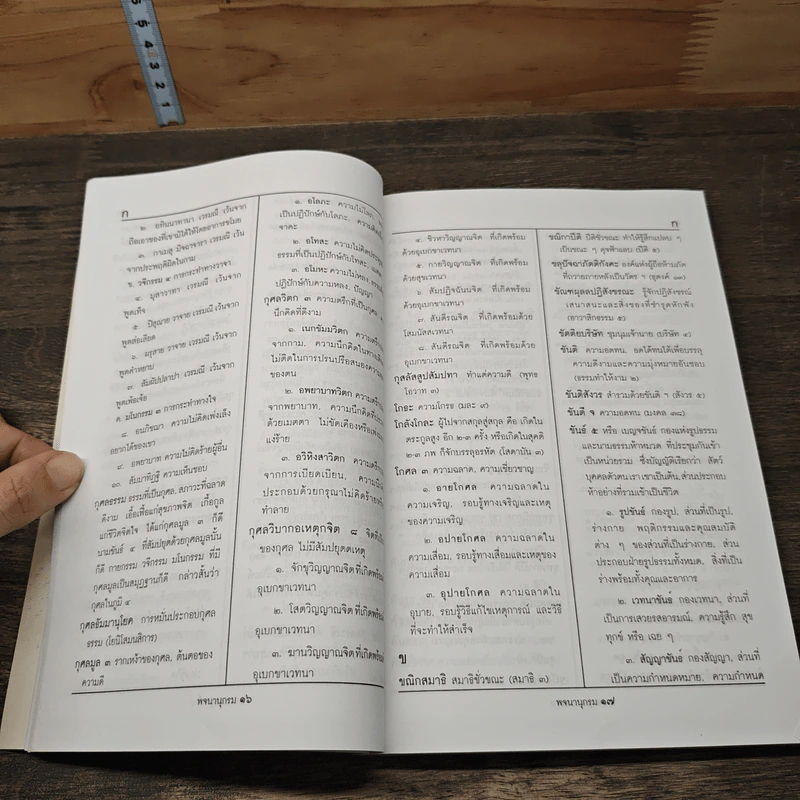 5 4 3 2 1
ก
๒. อทินนาทานา เวรมณี เว้นจาก
ถือเอาของที่เขามิได้ให้โดยอาการขโมย
๓. กาเมสุ มิจฉาจารา เวรมณี เว้น
จากประพฤติผิดในกาม
ข. วจีกรรม ๔ การกระทำทางวาจา
๔. มุสาวาทา เวรมณี เว้นจาก
พูดเท็จ
๕. ปิสุณาย วาจาย เวรมณี เว้นจาก
พูดส่อเสียด
๖. ผรุสาย วาจาย เวรมณี เว้นจาก
พูดคำหยาบ
๗. สัมผัปปลาปา เวรมณี เว้นจาก
พูดเพ้อเจ้อ
ค. มโนกรรม ๓ การกระทำทางใจ
๘. อนภิชฌา ความไม่คิดเพ่งเล็ง
อยากได้ของเขา
๙. อพยาบาท ความไม่คิดร้ายผู้อื่น
๑๐. สัมมาทิฏฐิ ความเห็นชอบ
กุศลธรรม ธรรมที่เป็นกุศล, สภาวะที่ฉลาด
ดีงาม เอื้อเพื่อแก่สุขภาพจิต เกื้อกูล
แก่ชีวิตจิตใจ ได้แก่กุศลมูล ๓ ก็ดี
นามขันธ์ ๔ ที่สัมปยุตด้วยกุศลมูลนั้น
ก็ดี กายกรรม วจีกรรม มโนกรรม ที่มี
กุศลมูลเป็นสมุฏฐานก็ดี กล่าวสั้นว่า
กุศลในภูมิ ๔
กุศลธัมมานุโยค การหมั่นประกอบกุศล
ธรรม (โยนิโสมนสิการ)
กุศลมูล ๓ รากเหง้าของกุศล, ต้นตอของ
ความดี
๑. อโลภะ ความไม่โลภ
เป็นปฏิปักษ์กับโลภะ, ความคิดเผื่อ
จาคะ
๒. อโทสะ ความไม่คิดประทุษ
ธรรมที่เป็นปฏิปักษ์กับโทสะ,
๓. อโมหะ ความไม่หลง, ธรรม
ปฏิปักษ์กับความหลง, ปัญญา
กุศลวิตก ๓ ความตรึกที่เป็นกุศล,
นึกคิดที่ดีงาม
๑. เนกขัมมวิตก ความตรึก
จากกาม, ความนึกคิดในทาง
ไม่ติดในการปรนปรือสนองความ
ของตน
๒. อพยาบาทวิตก ความตรึก
จากพยาบาท, ความนึกคิดที่ประ
ด้วยเมตตา ไม่ขัดเคืองหรือเพ่ง
แง่ร้าย
๓. อวิหิงสาวิตก ความตรึก
จากการเบียดเบียน, ความนึก
ประกอบด้วยกรุณาไม่คิดร้ายหรือ
ทำลาย
กุศลวิบากอเหตุกจิต ๘ จิตที่เป็น
ของกุศล ไม่มีสัมปยุตตเหตุ
๑. จักขุวิญญาณจิต ที่เกิดพร้อม
อุเบกขาเวทนา
๒. โสตวิญญาณจิต ที่เกิดพร้อม
อุเบกขาเวทนา
๓. ฆานวิญญาณจิต ที่เกิดพร้อม
อุเบกขาเวทนา
พจนานุกรม ๑๖
ก
๔. ชิวหาวิญญาณจิต ที่เกิดพร้อม
ด้วยอุเบกขาเวทนา
๕. กายวิญญาณจิต ที่เกิดพร้อม
ด้วยสุขเวทนา
๖. สัมปฏิจฉันนจิต ที่เกิดพร้อม
ด้วยอุเบกขาเวทนา
๗. สันตีรณจิต ที่เกิดพร้อมด้วย
โสมนัสสเวทนา
๘. สันตีรณจิต ที่เกิดพร้อมด้วย
อุเบกขาเวทนา
กุสลัสสูปสัมปทา ทำแต่ความดี (พุทธ
โอวาท ๓)
โกธะ ความโกรธ (มละ ๙)
โกลังโกละ ผู้ไปจากสกุลสู่สกุล คือ เกิดใน
ตระกูลสูง อีก ๒-๓ ครั้ง หรือเกิดในสุคติ
๒-๓ ภพ ก็จักบรรลุอรหัต (โสดาบัน ๓)
โกศล ๓ ความฉลาด, ความเชี่ยวชาญ
๑. อายโกศล ความฉลาดใน
ความเจริญ, รอบรู้ทางเจริญและเหตุ
ของความเจริญ
๒. อปายโกศล ความฉลาดใน
ความเสื่อม, รอบรู้ทางเสื่อมและเหตุของ
ความเสื่อม
๓. อุปายโกศล ความฉลาดใน
อุบาย, รอบรู้วิธีแก้ไขเหตุการณ์ และวิธี
ที่จะทำให้สำเร็จ
ข
ขณิกสมาธิ สมาธิชั่วขณะ (สมาธิ ๓)
ขณิกาปีติ ปีติชั่วขณะ ทำให้รู้สึกแปลบ ๆ
เป็นขณะ ๆ ดุจฟ้าแลบ (ปีติ ๕)
ขลุปัจฉาภัตติกังคะ องค์แห่งผู้ถือห้ามภัต
ที่ถวายภายหลังเป็นวัตร ฯ (ธุดงค์ ๑๓)
ขัณฑผุลลปฏิสังขรณะ รู้จักปฏิสังขรณ์
เสนาสนะและสิ่งของที่ชำรุดหักพัง
(อาวาสิกธรรม ๕)
ขัตติยบริษัท ชุมนุมเจ้านาย (บริษัท ๔)
ขันติ ความอดทน, อดได้ทนได้เพื่อบรรลุ
ความดีงามและความมุ่งหมายอันชอบ
(ธรรมทำให้งาม ๒)
ขันติสังวร สำรวมด้วยขันติ ฯ (สังวร ๕)
ขันตี จ ความอดทน (มงคล ๓๘)
ขันธ์ ๕ หรือ เบญจขันธ์ กองแห่งรูปธรรม
และนามธรรมห้าหมวด ที่ประชุมกันเข้า
เป็นหน่วยรวม ซึ่งบัญญัติเรียกว่า สัตว์
บุคคลตัวตน เรา เขา เป็นต้น, ส่วนประกอบ
ห้าอย่างที่รวมเข้าเป็นชีวิต
๑. รูปขันธ์ กองรูป, ส่วนที่เป็นรูป,
ร่างกาย พฤติกรรมและคุณสมบัติ
ต่าง ๆ ของส่วนที่เป็นร่างกาย, ส่วน
ประกอบฝ่ายรูปธรรมทั้งหมด, สิ่งที่เป็น
ร่างพร้อมทั้งคุณและอาการ
๒. เวทนาขันธ์ กองเวทนา, ส่วนที่
เป็นการเสวยรสอารมณ์, ความรู้สึก สุข
ทุกข์ หรือ เฉย ๆ
๓. สัญญาขันธ์ กองสัญญา, ส่วนที่
เป็นความกำหนดหมาย, ความกำหนด
พจนานุกรม ๑๗